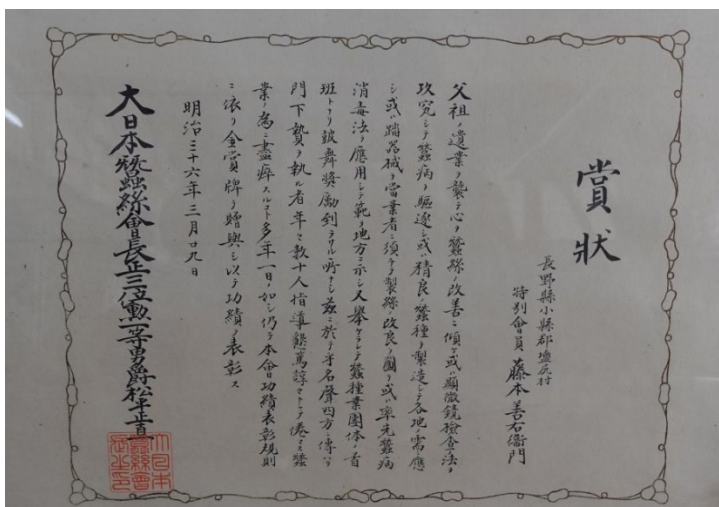 賞狀
長野縣小縣郡塩尻村
特別會員 藤本善右衞門
父祖ノ遺業ヲ襲テ心ヲ蠶絲ノ改善ニ傾ケ或ハ顯微鏡檢査ノ法ヲ
攻究シテ蠶病ヲ驅逐シ或ハ精良ノ蠶種ヲ製造シテ各地ノ需ニ應
シ或ハ踏器械ヲ當業者ニ頒チテ製絲ノ改良ヲ圖リ或ハ率先蠶病
消毒法ヲ應用シテ範ヲ地方ニ示シ又擧ケラレテ蠶種業團体ノ首
班トナリ鼓舞奬勵到ラサル所ナシ茲ニ於テ乎名聲四方ニ傳ハリ
門下贄ヲ執ル者年々數十人指導懇篤諄々トシテ倦マス蠶
業ノ為ニ盡瘁スルコト多年一日ノ如シ仍テ本會功績表彰規則
ニ依リ金賞牌ヲ贈與シ以テ功績ヲ表彰ス
明治三十六年三月廿九日
大日本蠶絲會長正三位勳一等男爵松平正直
大日本
蠶絲會
長之印